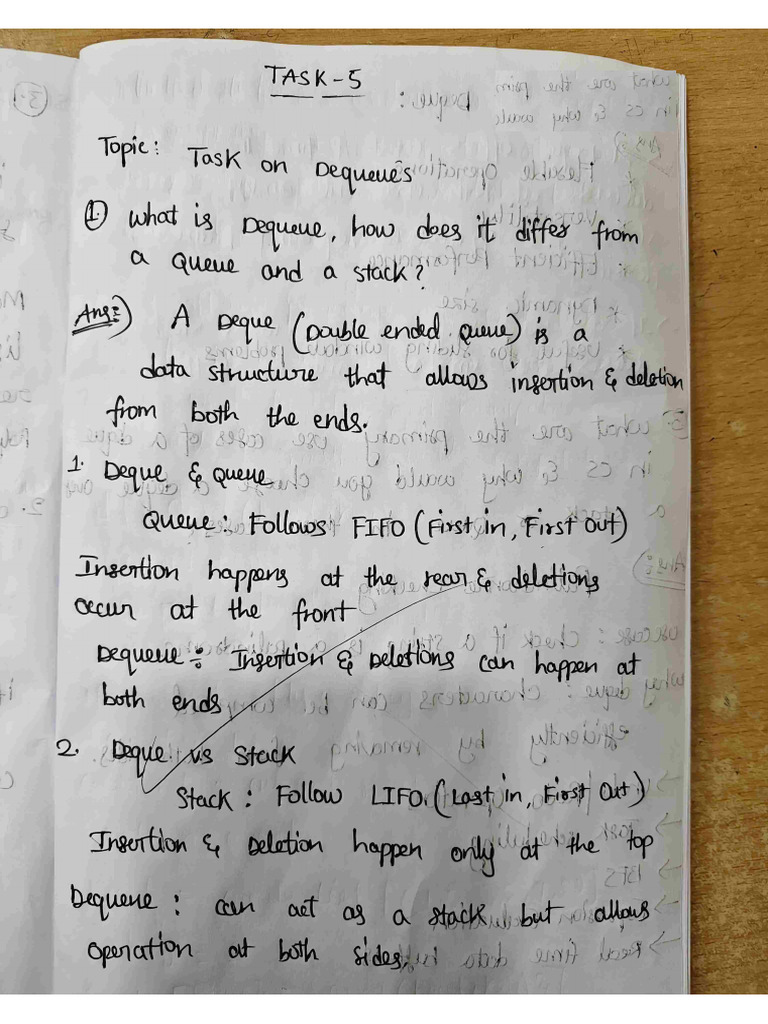 TASK-5
Topic: Task on Dequeue's
1. What is Dequeue, how does it differ from
a Queue and a stack?
Ans:) A Deque (Double ended Queue) is a
data structure that allows insertion & deletion
from both the ends.
1. Deque & Queue
Queue: Follows FIFO (First in, First Out)
Insertion happens at the rear & deletions
occur at the front
Dequeue: Insertion & Deletions can happen at
both ends
2. Deque vs Stack
Stack: Follow LIFO. (Last in, First Out)
Insertion & Deletion happen only at the top
Dequeue: can act as a stack but allows
operation at both sides